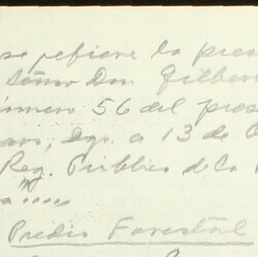 se refiere la pres
Señor Don Gilber
número 56 del pres
Dgo. a 13 de O
Reg. Público de la
Predio Forestal